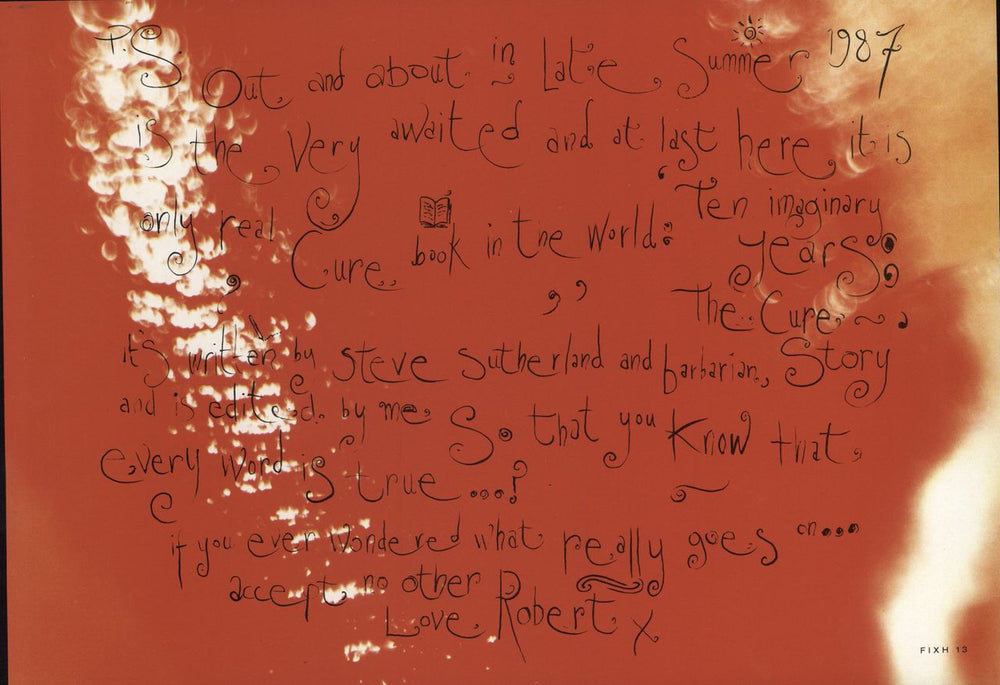 P.S. Out and about in Late Summer 1987
is the Very awaited and at last here, it is
only real Cure book in the world: 'Ten imaginary
years:
The Cure ~
it's written by Steve Sutherland and barbarian, Story
and is edited by me. So that you Know that
every word is true ...?
if you ever wondered what really goes on...
accept no other
Love Robert x
FIXH 13